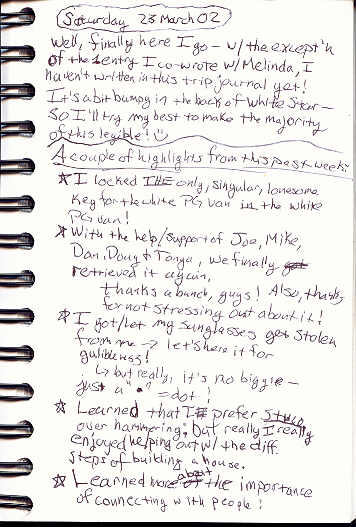 Saturday 23 March 02
Well, finally here I go - w/ the except'n
of the 1 entry I co-wrote w/ Melinda, I
haven't written in this trip journal yet!
It's a bit bumpy in the back of White Star -
So I'll try my best to make the majority
of this legible! :)
A couple of highlights from this past week:
★ I locked THE only, singular, lonesome
key for the white PG van in the white
PG van!
★ With the help/support of Joe, Mike,
Dan, Doug & Tonya, we finally got
retrieved it again,
thanks a bunch, guys! Also, thanks
for not stressing out about it!
★ I got/let my sunglasses get stolen
from me → let's hear it for
gulibleness!
↳ but really, it's no biggie -
just a "•"
= dot!
★ Learned that I prefer
over hammering; but really I really
enjoyed helping out w/ the diff.
steps of building a house.
★ Learned more about the importance
of connecting with people!